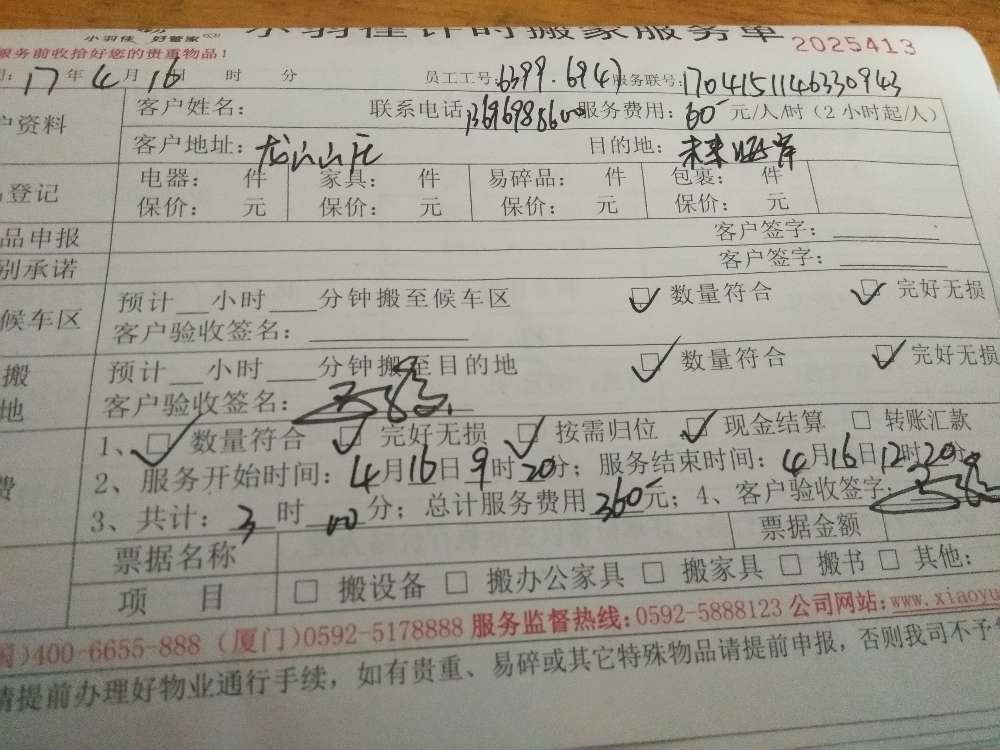 小羽佳 好管家
小羽佳计时搬家服务单
服务前收拾好您的贵重物品! 2025413
17年4月16日 时 分 员工工号:6399.6947 服务联号:1704151146330943
户资料 客户姓名: 联系电话:13696988600 服务费用:60元/人/时(2小时起/人)
客户地址:龙山山庄 目的地:未来海岸
登记 电器: 件 家具: 件 易碎品: 件 包裹: 件
保价: 元 保价: 元 保价: 元 保价: 元
品申报 客户签字:
别承诺 客户签字:
候车区 预计__小时___分钟搬至候车区 ☑数量符合 ☑完好无损
客户验收签名:
搬 预计__小时___分钟搬至目的地 ☑数量符合 ☑完好无损
地 客户验收签名:
费 1、☑数量符合 ☑完好无损 ☑按需归位 ☑现金结算 □转账汇款
2、服务开始时间:4月16日9时20分;服务结束时间:4月16日12时20分
3、共计:3时00分;总计服务费用360元;4、客户验收签字:
票据名称 票据金额
项 目 □搬设备 □搬办公家具 □搬家具 □搬书 □其他:
)400-6655-888 (厦门)0592-5178888 服务监督热线:0592-5888123 公司网站:www.xiaoyu
请提前办理好物业通行手续,如有贵重、易碎或其它特殊物品请提前申报,否则我司不予